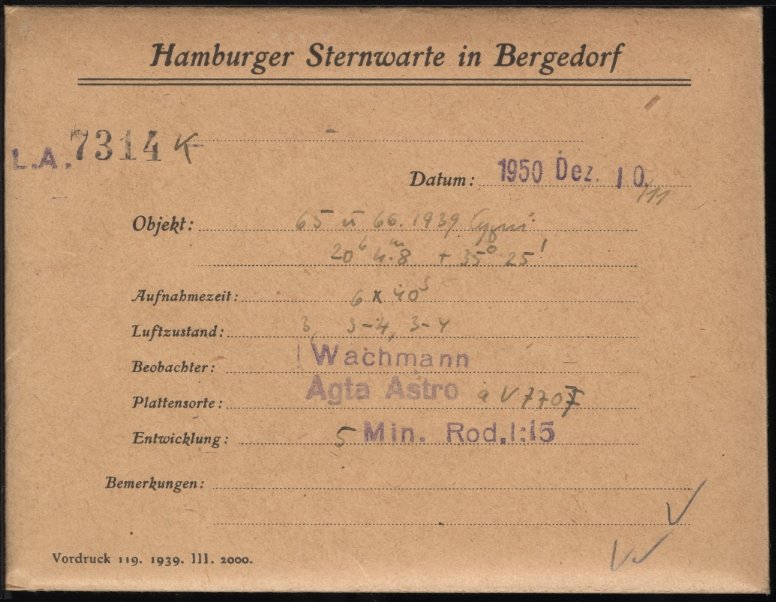 Hamburger Sternwarte in Bergedorf
L.A. 7314 K
Datum: 1950 Dez. 10/11
Objekt: 65 u 66.1939 Cygni
20h 4m.8 + 35° 25'
Aufnahmezeit: 6 x 40s
Luftzustand: 3, 3-4, 3-4
Beobachter: Wachmann
Plattensorte: Agfa Astro
Entwicklung: 5 Min. Rod.1:15
Bemerkungen:
Vordruck 119. 1939. III. 2000.